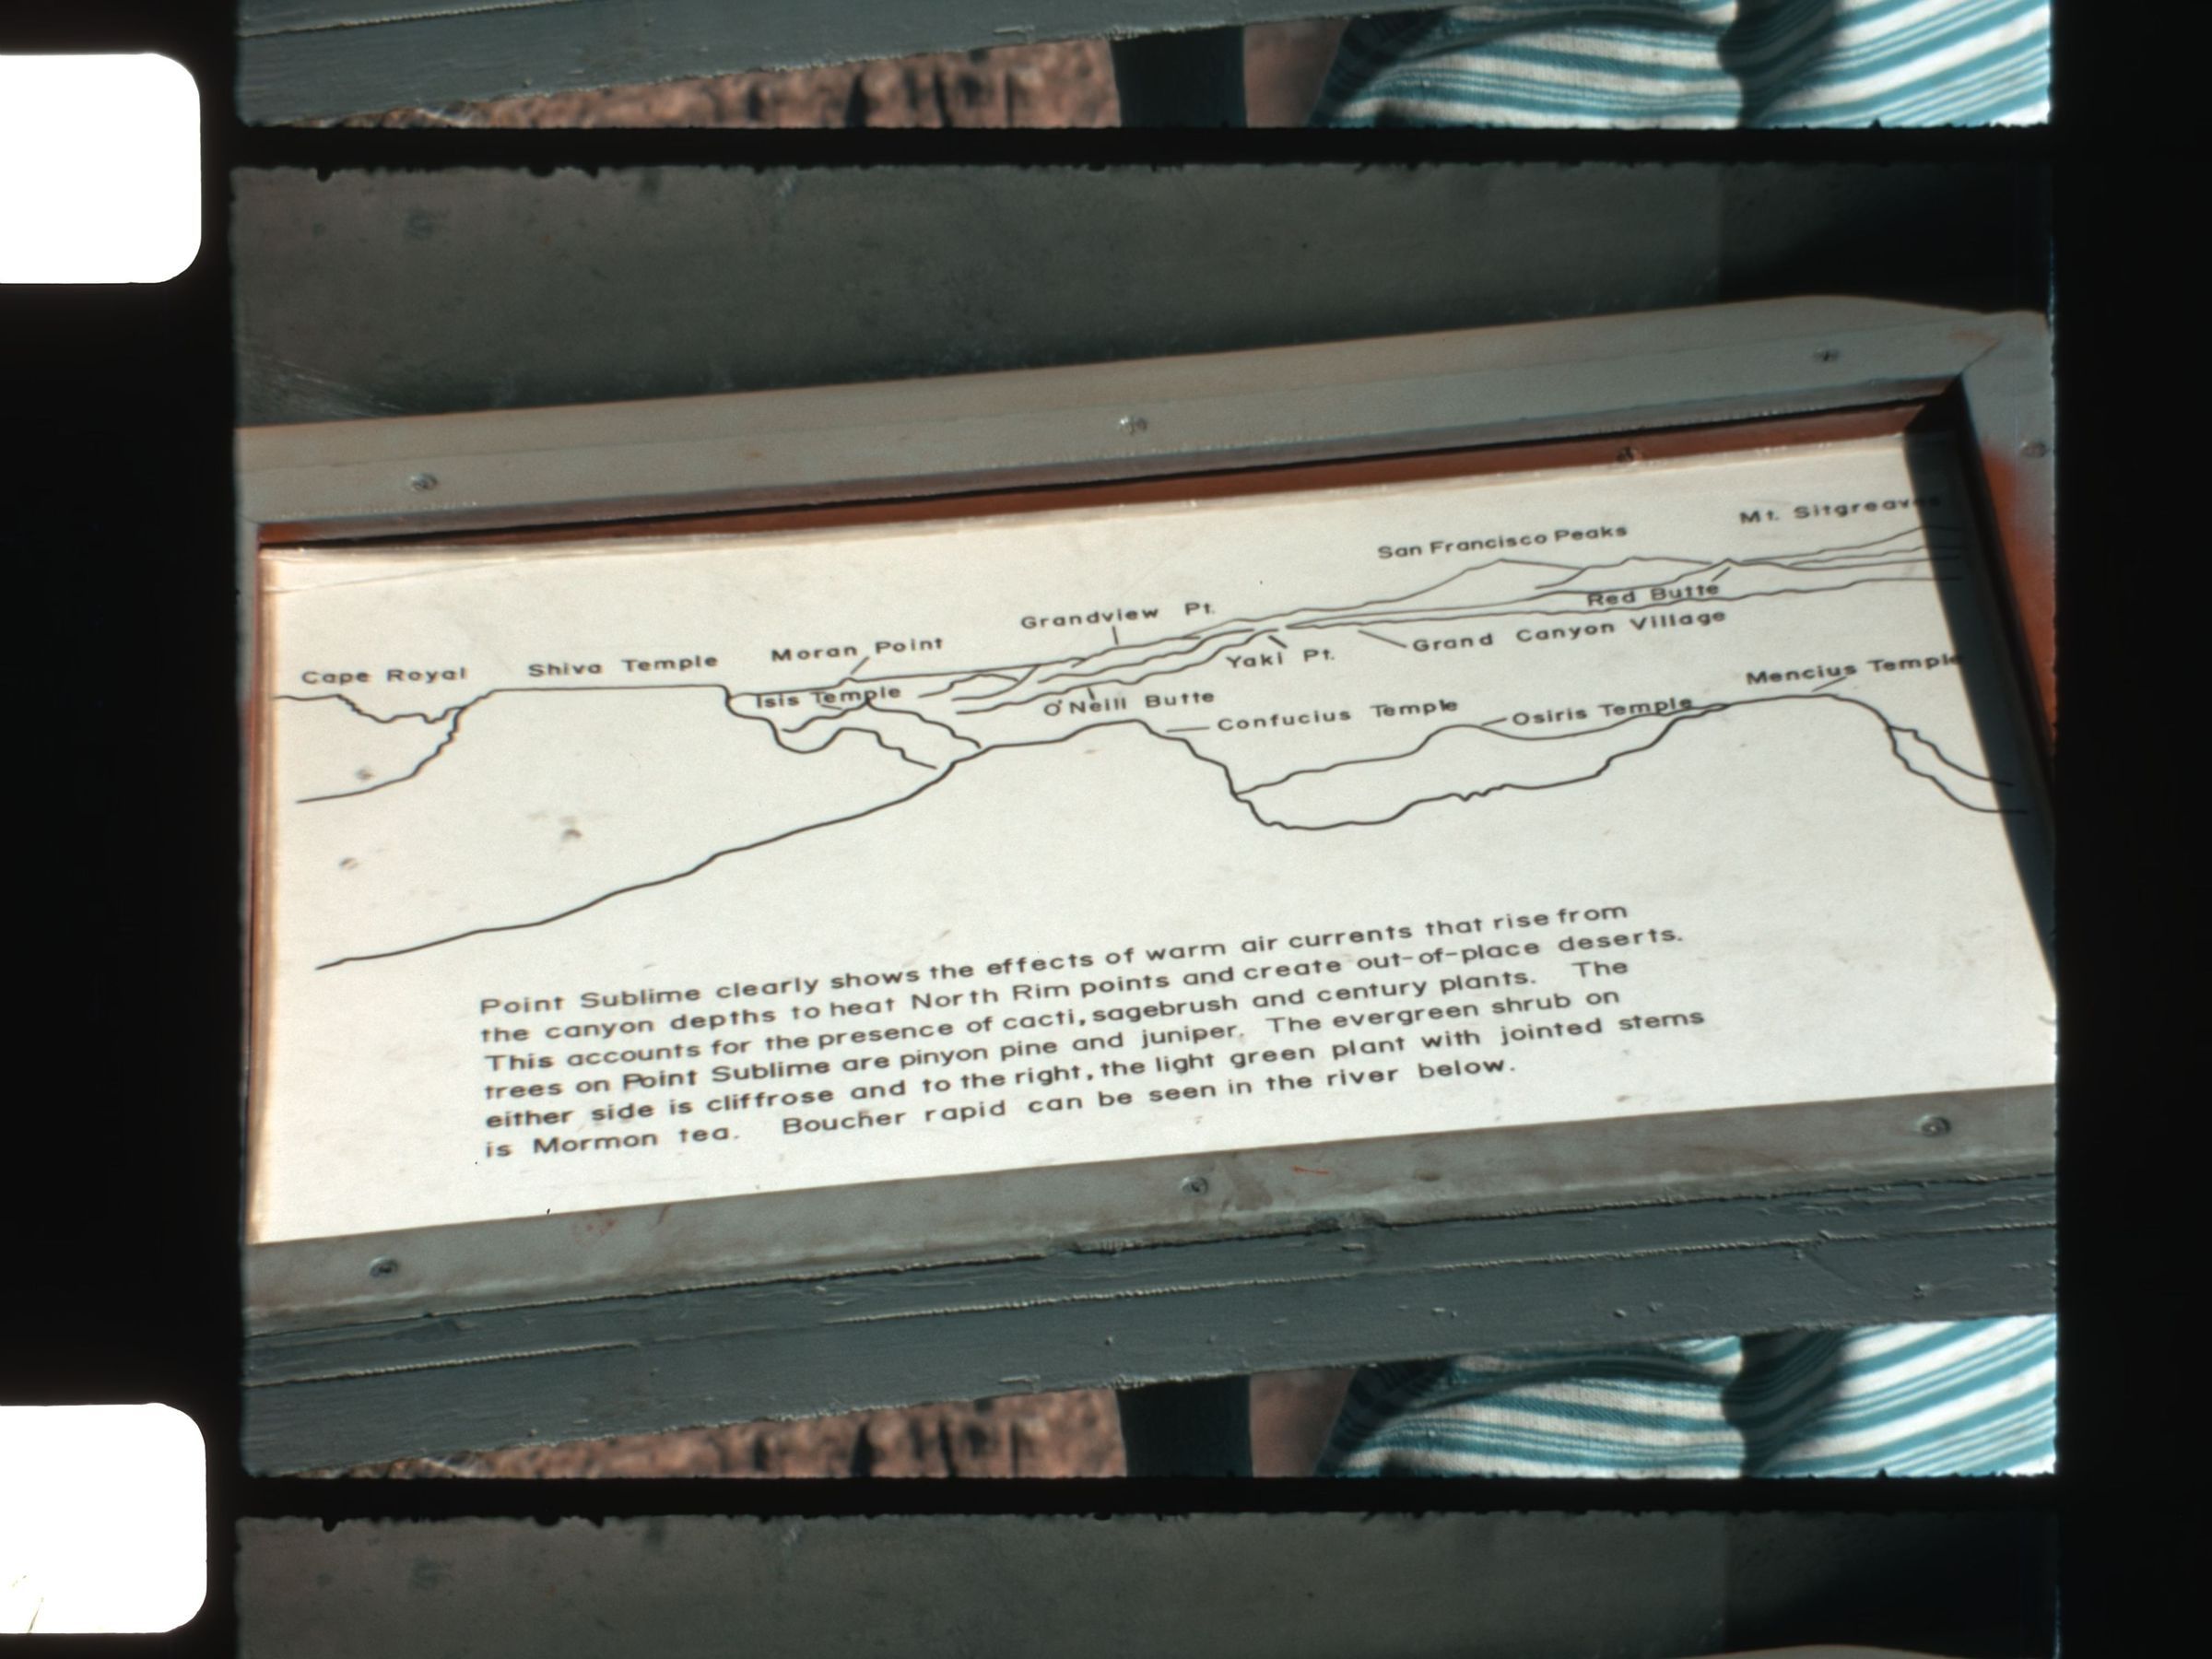 Mt. Sitgreaves
San Francisco Peaks
Red Butte
Grandview Pt.
Grand Canyon Village
Moran Point
Yaki Pt.
Cape Royal
Shiva Temple
Isis Temple
O'Neill Butte
Mencius Temple
Confucius Temple
Osiris Temple
Point Sublime clearly shows the effects of warm air currents that rise from
the canyon depths to heat North Rim points and create out-of-place deserts.
This accounts for the presence of cacti, sagebrush and century plants. The
trees on Point Sublime are pinyon pine and juniper. The evergreen shrub on
either side is cliffrose and to the right, the light green plant with jointed stems
is Mormon tea. Boucher rapid can be seen in the river below.